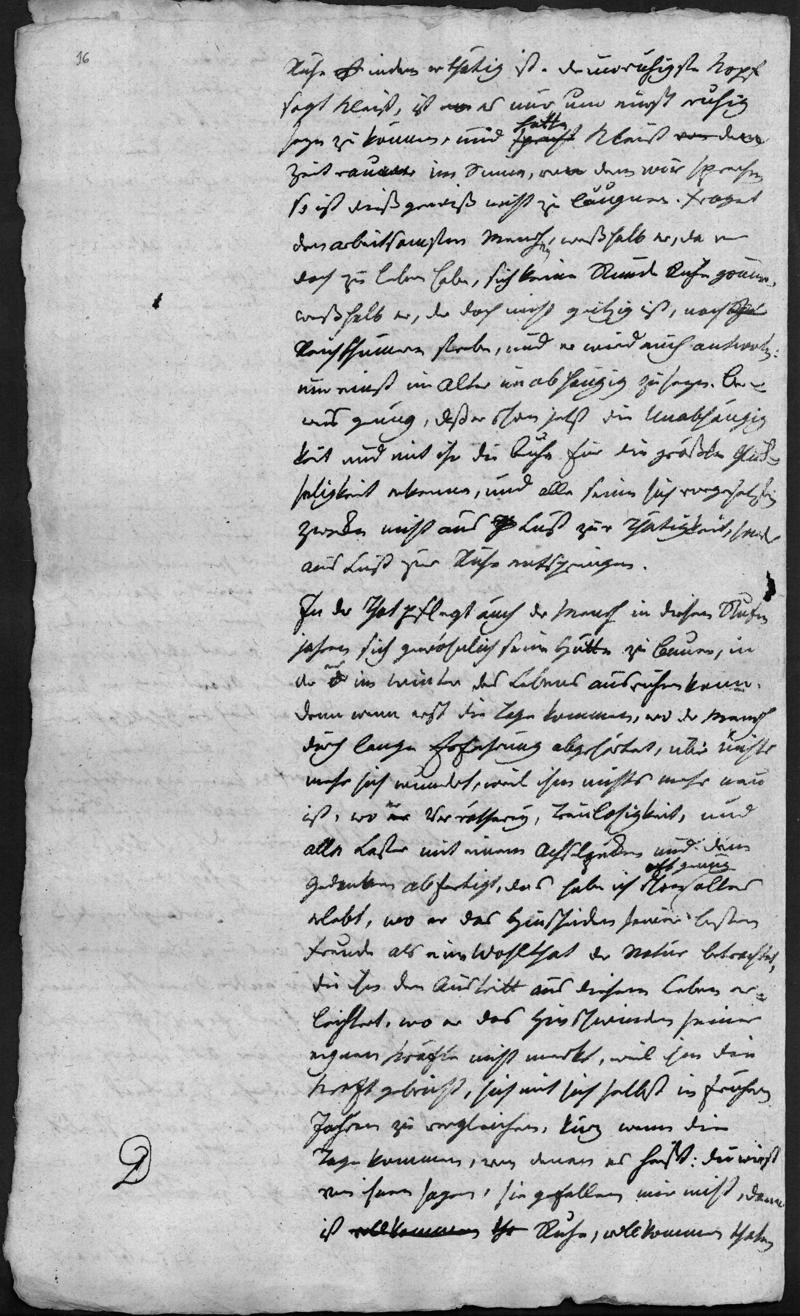 16
Ruhe indem er thätig ist. der unruhigste Kopf
sagt Kleist, ist es nur um einst ruhig
seyn zu können, und hätte Kleist von dem
Zeitraume im Sinne, von dem wir sprechen
so ist dieß gewiß nicht zu läugnen. Fraget
den arbeitsamsten Menschen, weßhalb er, da er
doch zu leben habe, sich keine Stunde Ruhe gönne,
weßhalb er, der doch nicht geitzig ist, nach
Reichthümern strebe, und er wird euch antworten:
um einst im Alter unabhängig zu seyn. Be-
weis genug, daß er schon jetzt die Unabhängig
keit und mit ihr die Ruhe für die größte Glük-
seligkeit erkenne, und alle seine sich vorgesetzten
Zweke nicht aus Lust zur Thätigkeit, sondern
aus Lust zur Ruhe entspringen.
In der That pflegt auch der Mensch in diesen
jahren sich gewöhnlich seine Hütte zu bauen, in
der er im Winter des Lebens ausruhen kann.
denn wenn erst die Tage kommen, wo der Mensch
durch lange Erfahrung abgehärtet, über nichts
mehr sich wundert, weil ihm nichts mehr neu
ist, wo er Verrätherey, Treulosigkeit, und
alle Laster mit einem Achselzuken und dem
oft genug
Gedanken abfertigt, das habe ich alles
erlebt, wo er das Hinscheiden seiner besten
Freunde als eine Wohlthat der Natur betrachtet,
die ihm den Austritt aus diesem Leben er-
leichtert, wo er das Hinschwinden seiner
eignen Kräfte nicht merkt, weil ihm die
Kraft gebricht, sich mit sich selbst in frühern
Jahren zu vergleichen, kurz wenn die
Tage kommen, von denen es heißt: du wirst
von ihnen sagen, sie gefallen mir nicht, dann
ist willkommen Ruhe, willkommen